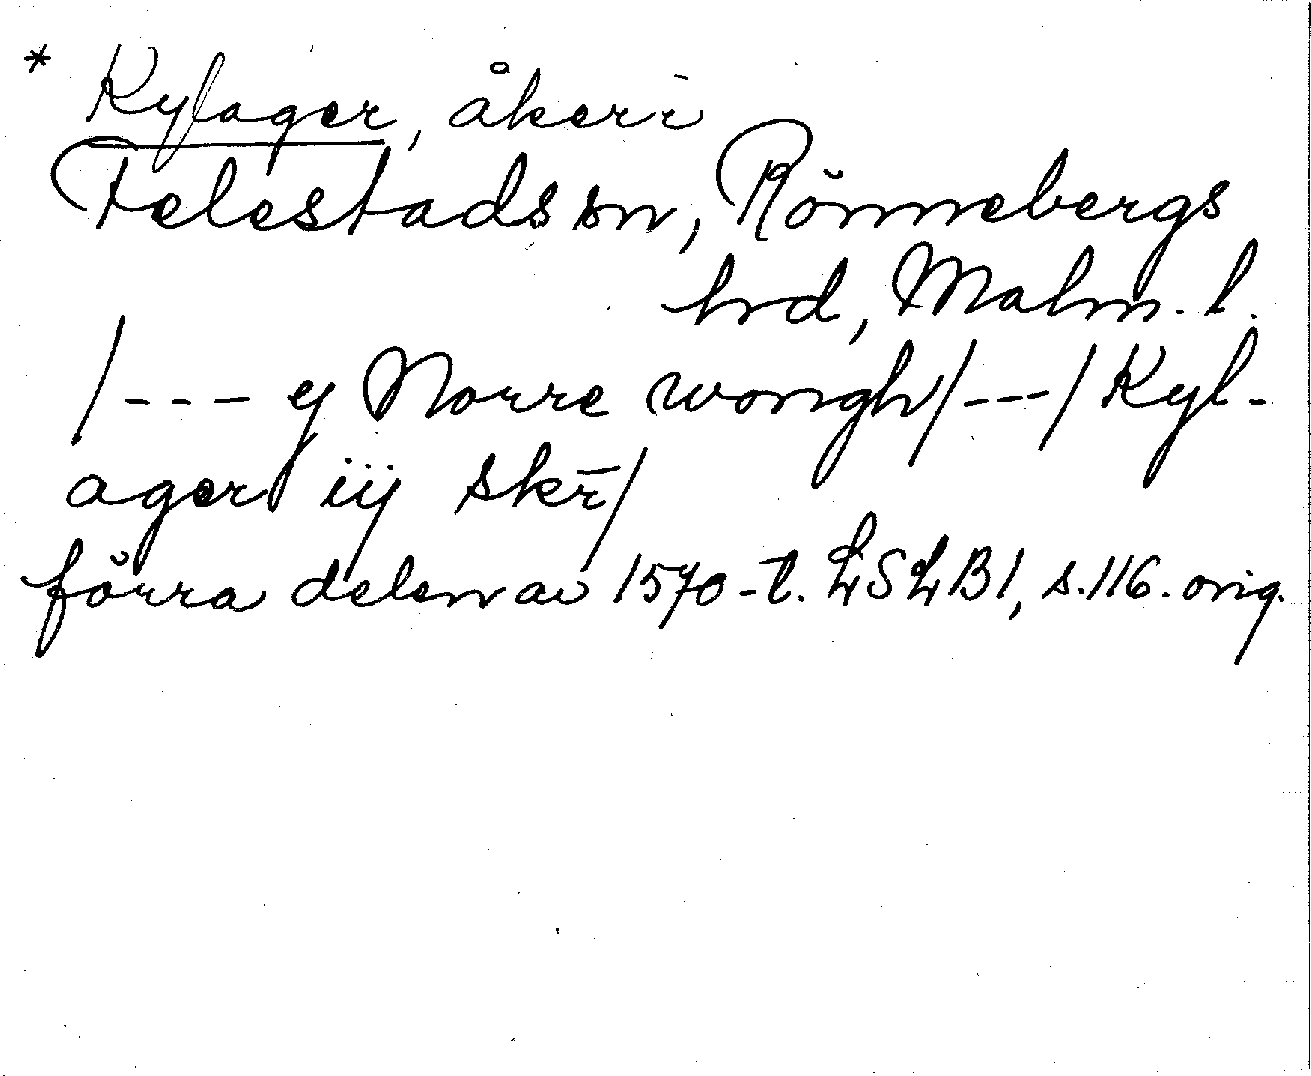 * Kylager, åker i
Felestads sn, Rönnebergs
hrd, Malm. l.
/--- y Norre wongh/---/Kyl-
ager iij skr̄/
förra delen av 1570-t. LSLB1, s.116. orig.